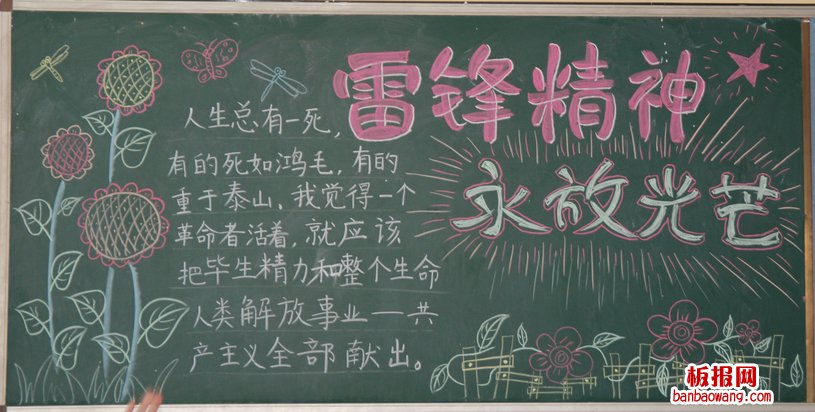 雷锋精神
永放光芒
人生总有一死，
有的死如鸿毛，有的
重于泰山，我觉得一个
革命者活着，就应该
把毕生精力和整个生命
人类解放事业——共
产主义全部献出。
板报网
banbaowang.com